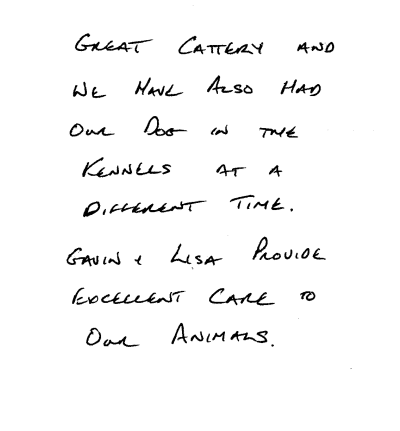 GREAT CATTERY AND
WE HAVE ALSO HAD
OUR DOG IN THE
KENNELS AT A
DIFFERENT TIME.
GAVIN & LISA PROVIDE
EXCELLENT CARE TO
OUR ANIMALS.